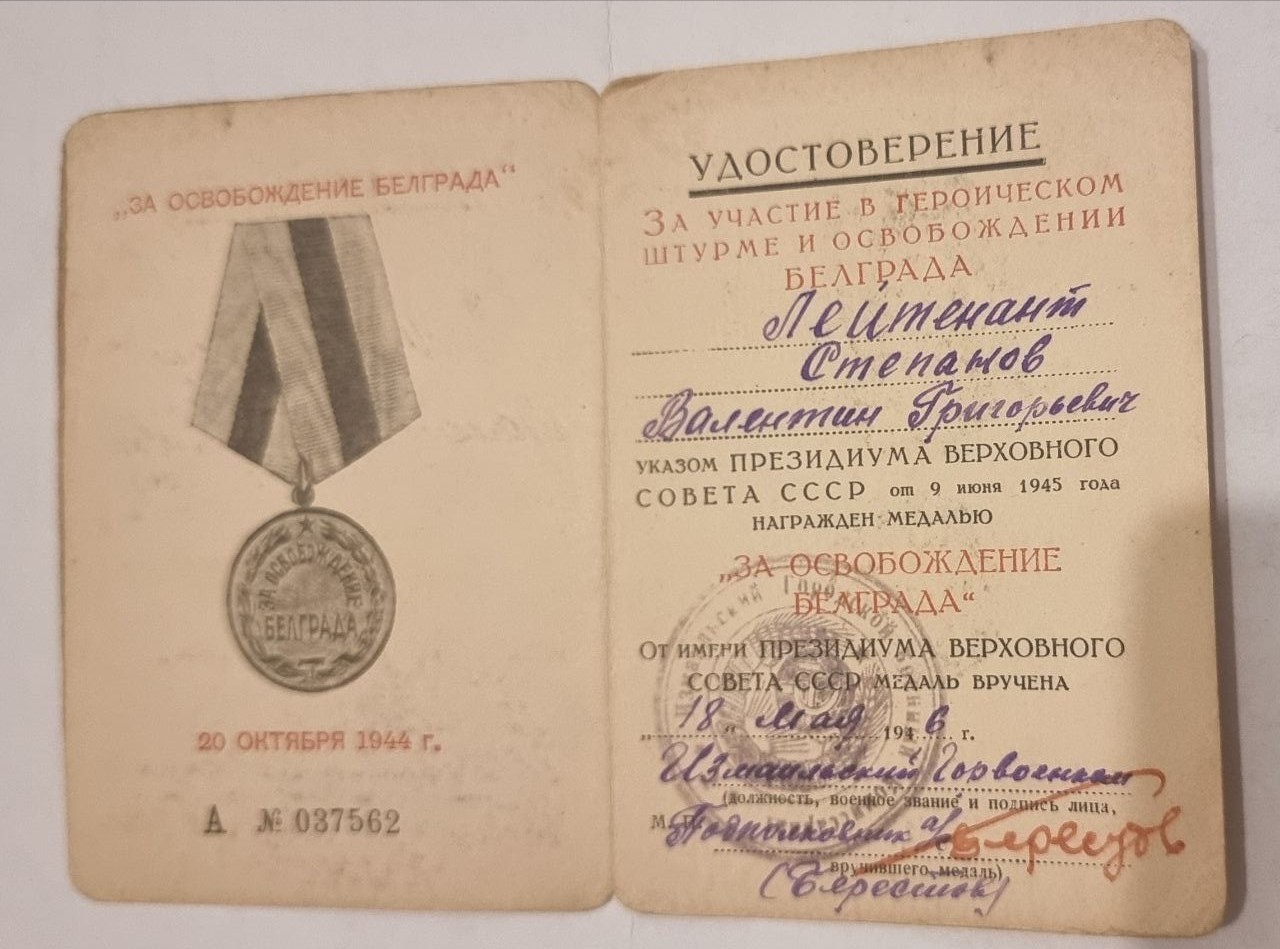 „ЗА ОСВОБОЖДЕНИЕ БЕЛГРАДА“
ЗА ОСВОБОЖДЕНИЕ
БЕЛГРАДА
20 ОКТЯБРЯ 1944 г.
А № 037562
УДОСТОВЕРЕНИЕ
ЗА УЧАСТИЕ В ГЕРОИЧЕСКОМ
ШТУРМЕ И ОСВОБОЖДЕНИИ
БЕЛГРАДА
Лейтенант
Степанов
Валентин Григорьевич
УКАЗОМ ПРЕЗИДИУМА ВЕРХОВНОГО
СОВЕТА СССР от 9 июня 1945 года
НАГРАЖДЕН МЕДАЛЬЮ
„ЗА ОСВОБОЖДЕНИЕ
БЕЛГРАДА“
ОТ ИМЕНИ ПРЕЗИДИУМА ВЕРХОВНОГО
СОВЕТА СССР МЕДАЛЬ ВРУЧЕНА
„18„ мая 1946 г.
Измаильский Горвоенком
(должность, военное звание и подпись лица,
М. П. Подполковник а/с
вручившего медаль)